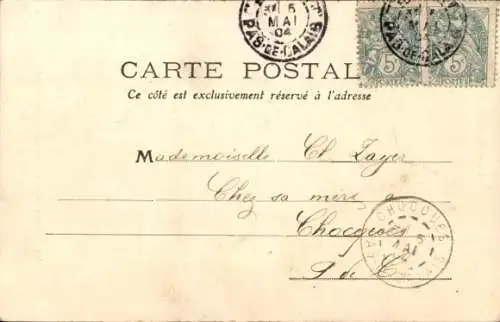 5
MAI
04
PAS-DE-CALAIS
5c 5c
CARTE POSTAL
Ce côté est exclusivement réservé à l'adresse
Mademoiselle Ch. Layer
Chez sa mère a
Chocques
P de C
CHOCQUES
5
MAI